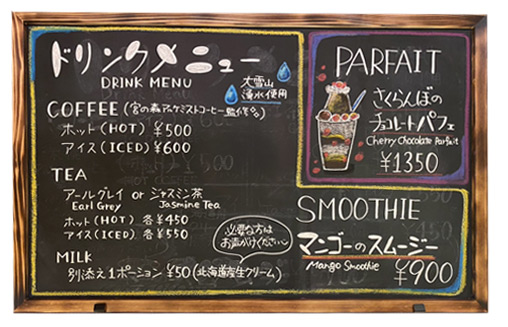 ドリンクメニュー
DRINK MENU
大雪山
湧水使用
COFFEE (宮の森アルケミストコーヒー監修)
ホット(HOT) ¥500
アイス(ICED) ¥600
TEA
アールグレイ or ジャスミン茶
Earl Grey Jasmine Tea
ホット(HOT) 各¥450
アイス(ICED) 各¥550
必要な方は
お声がけください
MILK
別添え1ポーション ¥50 (北海道産生クリーム)
PARFAIT
さくらんぼの
チョコレートパフェ
Cherry Chocolate Parfait
¥1350
SMOOTHIE
マンゴーのスムージー
Mango Smoothie
¥900